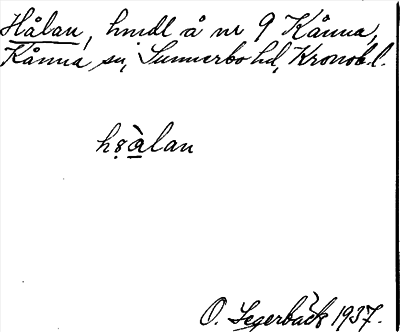 Hålan, hmdl å nr 9 Kånna,
Kånna sn, Sunnerbo hd, Kronob. l.
h8̣à̱lan
O. Segerbäck 1937.